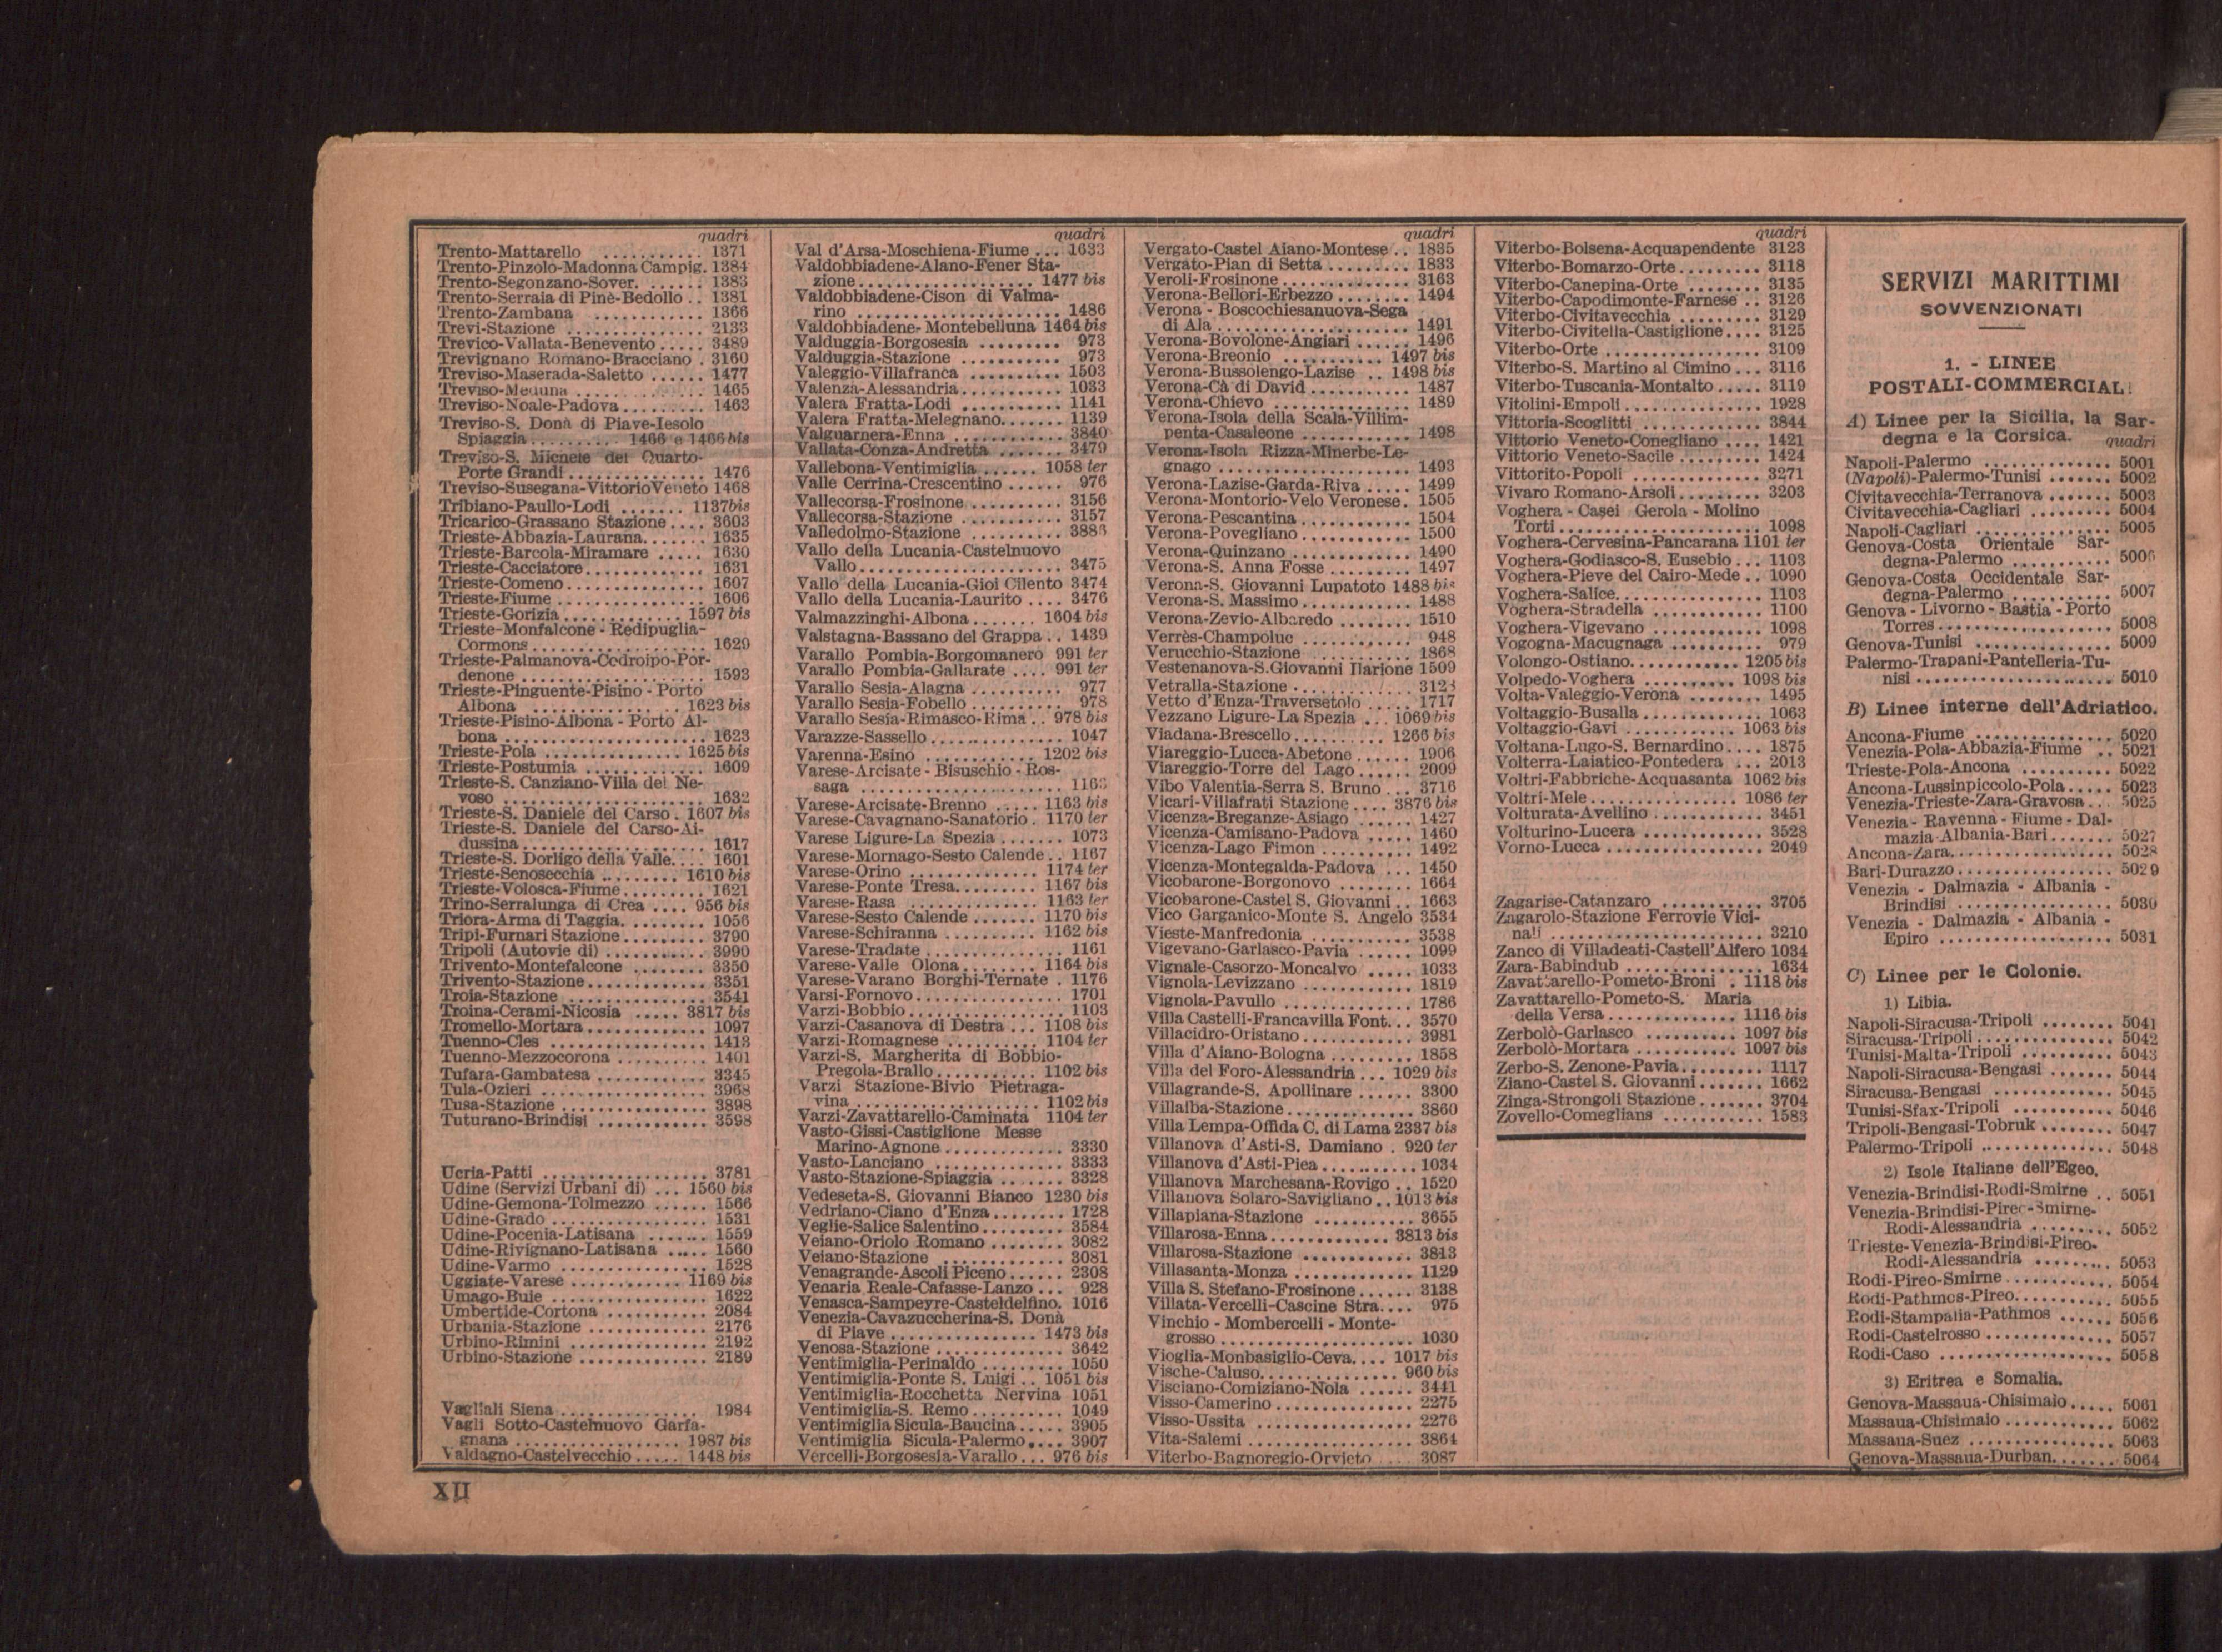 quadri
Trento-Mattarello .......... 1371
Trento-Pinzolo-Madonna Campig. 1384
Trento-Segonzano-Sover. ...... 1383
Trento-Serraia di Pinè-Bedollo .. 1381
Trento-Zambana ........... 1366
Trevi-Stazione .............. 2133
Trevico-Vallata-Benevento ..... 3489
Trevignano Romano-Bracciano . 3160
Treviso-Maserada-Saletto ...... 1477
Treviso-Meduna ............. 1465
Treviso-Noale-Padova ......... 1463
Treviso-S. Donà di Piave-Iesolo
Spiaggia ......... 1466 e 1466 bis
Treviso-S. Michele del Quarto-
Porte Grandi ............... 1476
Treviso-Susegana-Vittorio Veneto 1468
Tribiano-Paullo-Lodi ....... 1137bis
Tricarico-Grassano Stazione .... 3603
Trieste-Abbazia-Laurana. ...... 1635
Trieste-Barcola-Miramare ..... 1630
Trieste-Cacciatore ............ 1631
Trieste-Comeno .............. 1607
Trieste-Fiume ............... 1606
Trieste-Gorizia ............. 1597 bis
Trieste-Monfalcone - Redipuglia-
Cormons .................. 1629
Trieste-Palmanova-Codroipo-Por-
denone ................... 1593
Trieste-Pinguente-Pisino - Porto
Albona ................ 1623 bis
Trieste-Pisino-Albona - Porto Al-
bona ..................... 1623
Trieste-Pola .............. 1625 bis
Trieste-Postumia ............ 1609
Trieste-S. Canziano-Villa del Ne-
voso ..................... 1632
Trieste-S. Daniele del Carso . 1607 bis
Trieste-S. Daniele del Carso-Ai-
dussina ................... 1617
Trieste-S. Dorligo della Valle. ... 1601
Trieste-Senosecchia ......... 1610 bis
Trieste-Volosca-Fiume ......... 1621
Trino-Serralunga di Crea .... 956 bis
Triora-Arma di Taggia. ........ 1056
Tripi-Furnari Stazione ......... 3790
Tripoli (Autovie di) ........... 3990
Trivento-Montefalcone ........ 3350
Trivento-Stazione ............ 3351
Troia-Stazione .............. 3541
Troina-Cerami-Nicosia ..... 3817 bis
Tromello-Mortara ............ 1097
Tuenno-Cles ................ 1413
Tuenno-Mezzocorona .......... 1401
Tufara-Gambatesa ............ 3345
Tula-Ozieri ................. 3968
Tusa-Stazione ............... 3898
Tuturano-Brindisi ............ 3598
Ucria-Patti .................. 3781
Udine (Servizi Urbani di) ... 1560 bis
Udine-Gemona-Tolmezzo ...... 1566
Udine-Grado ................ 1531
Udine-Pocenia-Latisana ....... 1559
Udine-Rivignano-Latisana ..... 1560
Udine-Varmo ............... 1528
Uggiate-Varese ............ 1169 bis
Umago-Buie ................ 1622
Umbertide-Cortona ........... 2084
Urbania-Stazione ............ 2176
Urbino-Rimini .............. 2192
Urbino-Stazione ............. 2189
Vagliali Siena ................ 1984
Vagli Sotto-Castelnuovo Garfa-
gnana ................... 1987 bis
Valdagno-Castelvecchio ..... 1448 bis
quadri
Val d'Arsa-Moschiena-Fiume ... 1633
Valdobbiadene-Alano-Fener Sta-
zione ................... 1477 bis
Valdobbiadene-Cison di Valma-
rino ...................... 1486
Valdobbiadene-Montebelluna 1464 bis
Valduggia-Borgosesia ......... 973
Valduggia-Stazione .......... 973
Valeggio-Villafranca .......... 1503
Valenza-Alessandria ........... 1033
Valera Fratta-Lodi ........... 1141
Valera Fratta-Melegnano. ...... 1139
Valguarnera-Enna ............ 3840
Vallata-Conza-Andretta ....... 3479
Vallebona-Ventimiglia ...... 1058 ter
Valle Cerrina-Crescentino ...... 976
Vallecorsa-Frosinone .......... 3156
Vallecorsa-Stazione ........... 3157
Valledolmo-Stazione .......... 3883
Vallo della Lucania-Castelnuovo
Vallo ...................... 3475
Vallo della Lucania-Gioi Cilento 3474
Vallo della Lucania-Laurito .... 3476
Valmazzinghi-Albona ....... 1604 bis
Valstagna-Bassano del Grappa .. 1439
Varallo Pombia-Borgomanero 991 ter
Varallo Pombia-Gallarate .... 991 ter
Varallo Sesia-Alagna .......... 977
Varallo Sesia-Fobello .......... 978
Varallo Sesia-Rimasco-Rima .. 978 bis
Varazze-Sassello .............. 1047
Varenna-Esino ............ 1202 bis
Varese-Arcisate - Bisuschio - Ros-
saga ...................... 1163
Varese-Arcisate-Brenno ..... 1163 bis
Varese-Cavagnano-Sanatorio . 1170 ter
Varese Ligure-La Spezia ....... 1073
Varese-Mornago-Sesto Calende .. 1167
Varese-Orino .............. 1174 ter
Varese-Ponte Tresa ......... 1167 bis
Varese-Rasa .............. 1163 ter
Varese-Sesto Calende ....... 1170 bis
Varese-Schiranna .......... 1162 bis
Varese-Tradate ............... 1161
Varese-Valle Olona ........ 1164 bis
Varese-Varano Borghi-Ternate . 1176
Varsi-Fornovo ................ 1701
Varzi-Bobbio ................. 1103
Varzi-Casanova di Destra ... 1108 bis
Varzi-Romagnese .......... 1104 ter
Varzi-S. Margherita di Bobbio-
Pregola-Brallo ........... 1102 bis
Varzi Stazione-Bivio Pietraga-
vina .................... 1102 bis
Varzi-Zavattarello-Caminata 1104 ter
Vasto-Gissi-Castiglione Messe
Marino-Agnone ............. 3330
Vasto-Lanciano .............. 3333
Vasto-Stazione-Spiaggia ....... 3328
Vedeseta-S. Giovanni Bianco 1230 bis
Vedriano-Ciano d'Enza ........ 1728
Veglie-Salice Salentino ......... 3584
Veiano-Oriolo Romano ........ 3082
Veiano-Stazione ............. 3081
Venagrande-Ascoli Piceno ...... 2308
Venaria Reale-Cafasse-Lanzo ... 928
Venasca-Sampeyre-Casteldelfino. 1016
Venezia-Cavazuccherina-S. Donà
di Piave ................ 1473 bis
Venosa-Stazione .............. 3642
Ventimiglia-Perinaldo ......... 1050
Ventimiglia-Ponte S. Luigi .. 1051 bis
Ventimiglia-Rocchetta Nervina 1051
Ventimiglia-S. Remo .......... 1049
Ventimiglia Sicula-Baucina ..... 3905
Ventimiglia Sicula-Palermo .... 3907
Vercelli-Borgosesia-Varallo ... 976 bis
quadri
Vergato-Castel Aiano-Montese .. 1835
Vergato-Pian di Setta ......... 1833
Veroli-Frosinone .............. 3163
Verona-Bellori-Erbezzo ........ 1494
Verona - Boscochiesanuova-Sega
di Ala ..................... 1491
Verona-Bovolone-Angiari ...... 1496
Verona-Breonio ........... 1497 bis
Verona-Bussolengo-Lazise .. 1498 bis
Verona-Cà di David ........... 1487
Verona-Chievo ............... 1489
Verona-Isola della Scala-Villim-
penta-Casaleone ............ 1498
Verona-Isola Rizza-Minerbe-Le-
gnago ..................... 1493
Verona-Lazise-Garda-Riva ..... 1499
Verona-Montorio-Velo Veronese. 1505
Verona-Pescantina ............ 1504
Verona-Povegliano ............ 1500
Verona-Quinzano ............. 1490
Verona-S. Anna Fosse ......... 1497
Verona-S. Giovanni Lupatoto 1488 bis
Verona-S. Massimo ............ 1488
Verona-Zevio-Albaredo ........ 1510
Verrès-Champoluc ............ 948
Verucchio-Stazione ............ 1868
Vestenanova-S.Giovanni Ilarione 1509
Vetralla-Stazione ............. 3123
Vetto d'Enza-Traversetolo ..... 1717
Vezzano Ligure-La Spezia ... 1069 bis
Viadana-Brescello .......... 1266 bis
Viareggio-Lucca-Abetone ...... 1906
Viareggio-Torre del Lago ...... 2009
Vibo Valentia-Serra S. Bruno ... 3716
Vicari-Villafrati Stazione .... 3876 bis
Vicenza-Breganze-Asiago ...... 1427
Vicenza-Camisano-Padova ..... 1460
Vicenza-Lago Fimon .......... 1492
Vicenza-Montegalda-Padova ... 1450
Vicobarone-Borgonovo ........ 1664
Vicobarone-Castel S. Giovanni .. 1663
Vico Garganico-Monte S. Angelo 3534
Vieste-Manfredonia ........... 3538
Vigevano-Garlasco-Pavia ...... 1099
Vignale-Casorzo-Moncalvo ..... 1033
Vignola-Levizzano ............ 1819
Vignola-Pavullo .............. 1786
Villa Castelli-Francavilla Font. .. 3570
Villacidro-Oristano ............ 3981
Villa d'Aiano-Bologna ......... 1858
Villa del Foro-Alessandria ... 1029 bis
Villagrande-S. Apollinare ...... 3300
Villalba-Stazione .............. 3860
Villa Lempa-Offida C. di Lama 2337 bis
Villanova d'Asti-S. Damiano . 920 ter
Villanova d'Asti-Piea .......... 1034
Villanova Marchesana-Rovigo .. 1520
Villanova Solaro-Savigliano .. 1013 bis
Villapiana-Stazione ........... 3655
Villarosa-Enna ............. 3813 bis
Villarosa-Stazione ............ 3813
Villasanta-Monza ............. 1129
Villa S. Stefano-Frosinone ...... 3138
Villata-Vercelli-Cascine Stra. ... 975
Vinchio - Mombercelli - Monte-
grosso ..................... 1030
Vioglia-Monbasiglio-Ceva. ... 1017 bis
Vische-Caluso .............. 960 bis
Visciano-Comiziano-Nola ...... 3441
Visso-Camerino ............... 2275
Visso-Ussita ................. 2276
Vita-Salemi .................. 3864
Viterbo-Bagnoregio-Orvieto ... 3087
quadri
Viterbo-Bolsena-Acquapendente 3123
Viterbo-Bomarzo-Orte ......... 3118
Viterbo-Canepina-Orte ........ 3135
Viterbo-Capodimonte-Farnese .. 3126
Viterbo-Civitavecchia ......... 3129
Viterbo-Civitella-Castiglione .... 3125
Viterbo-Orte ................. 3109
Viterbo-S. Martino al Cimino ... 3116
Viterbo-Tuscania-Montalto ..... 3119
Vitolini-Empoli ............... 1928
Vittoria-Scoglitti .............. 3844
Vittorio Veneto-Conegliano .... 1421
Vittorio Veneto-Sacile ......... 1424
Vittorito-Popoli .............. 3271
Vivaro Romano-Arsoli ......... 3203
Voghera - Casei Gerola - Molino
Torti ...................... 1098
Voghera-Cervesina-Pancarana 1101 ter
Voghera-Godiasco-S. Eusebio ... 1103
Voghera-Pieve del Cairo-Mede .. 1090
Voghera-Salice ............... 1103
Voghera-Stradella ............ 1100
Voghera-Vigevano ............ 1098
Vogogna-Macugnaga .......... 979
Volongo-Ostiano. ........... 1205 bis
Volpedo-Voghera .......... 1098 bis
Volta-Valeggio-Verona ........ 1495
Voltaggio-Busalla ............. 1063
Voltaggio-Gavi ............. 1063 bis
Voltana-Lugo-S. Bernardino .... 1875
Volterra-Laiatico-Pontedera ... 2013
Voltri-Fabbriche-Acquasanta 1062 bis
Voltri-Mele ................ 1086 ter
Volturata-Avellino ............ 3451
Volturino-Lucera ............. 3528
Vorno-Lucca ................. 2049
Zagarise-Catanzaro ........... 3705
Zagarolo-Stazione Ferrovie Vici-
nali ....................... 3210
Zanco di Villadeati-Castell'Alfero 1034
Zara-Babindub ............... 1634
Zavattarello-Pometo-Broni . 1118 bis
Zavattarello-Pometo-S. Maria
della Versa .............. 1116 bis
Zerbolò-Garlasco .......... 1097 bis
Zerbolò-Mortara ........... 1097 bis
Zerbo-S. Zenone-Pavia ......... 1117
Ziano-Castel S. Giovanni ....... 1662
Zinga-Strongoli Stazione ....... 3704
Zovello-Comeglians ........... 1583
SERVIZI MARITTIMI
SOVVENZIONATI
1. - LINEE
POSTALI-COMMERCIALI
A) Linee per la Sicilia, la Sar-
degna e la Corsica. quadri
Napoli-Palermo .............. 5001
(Napoli)-Palermo-Tunisi ....... 5002
Civitavecchia-Terranova ....... 5003
Civitavecchia-Cagliari ......... 5004
Napoli-Cagliari ............... 5005
Genova-Costa Orientale Sar-
degna-Palermo ........... 5006
Genova-Costa Occidentale Sar-
degna-Palermo ........... 5007
Genova - Livorno - Bastia - Porto
Torres ................... 5008
Genova-Tunisi ............... 5009
Palermo-Trapani-Pantelleria-Tu-
nisi ...................... 5010
B) Linee interne dell'Adriatico.
Ancona-Fiume ............... 5020
Venezia-Pola-Abbazia-Fiume .. 5021
Trieste-Pola-Ancona .......... 5022
Ancona-Lussinpiccolo-Pola ..... 5023
Venezia-Trieste-Zara-Gravosa ... 5025
Venezia - Ravenna - Fiume - Dal-
mazia-Albania-Bari ....... 5027
Ancona-Zara. ................ 5028
Bari-Durazzo ................. 5029
Venezia - Dalmazia - Albania -
Brindisi .................. 5030
Venezia - Dalmazia - Albania -
Epiro .................... 5031
C) Linee per le Colonie.
1) Libia.
Napoli-Siracusa-Tripoli ........ 5041
Siracusa-Tripoli ............... 5042
Tunisi-Malta-Tripoli .......... 5043
Napoli-Siracusa-Bengasi ....... 5044
Siracusa-Bengasi ............. 5045
Tunisi-Sfax-Tripoli ........... 5046
Tripoli-Bengasi-Tobruk ........ 5047
Palermo-Tripoli .............. 5048
2) Isole Italiane dell'Egeo.
Venezia-Brindisi-Rodi-Smirne .. 5051
Venezia-Brindisi-Pireo-Smirne-
Rodi-Alessandria ......... 5052
Trieste-Venezia-Brindisi-Pireo-
Rodi-Alessandria ......... 5053
Rodi-Pireo-Smirne ............ 5054
Rodi-Pathmos-Pireo. .......... 5055
Rodi-Stampalia-Pathmos ...... 5056
Rodi-Castelrosso .............. 5057
Rodi-Caso ................... 5058
3) Eritrea e Somalia.
Genova-Massaua-Chisimaio ..... 5061
Massaua-Chisimaio ............ 5062
Massaua-Suez ................ 5063
Genova-Massaua-Durban. ...... 5064
XII